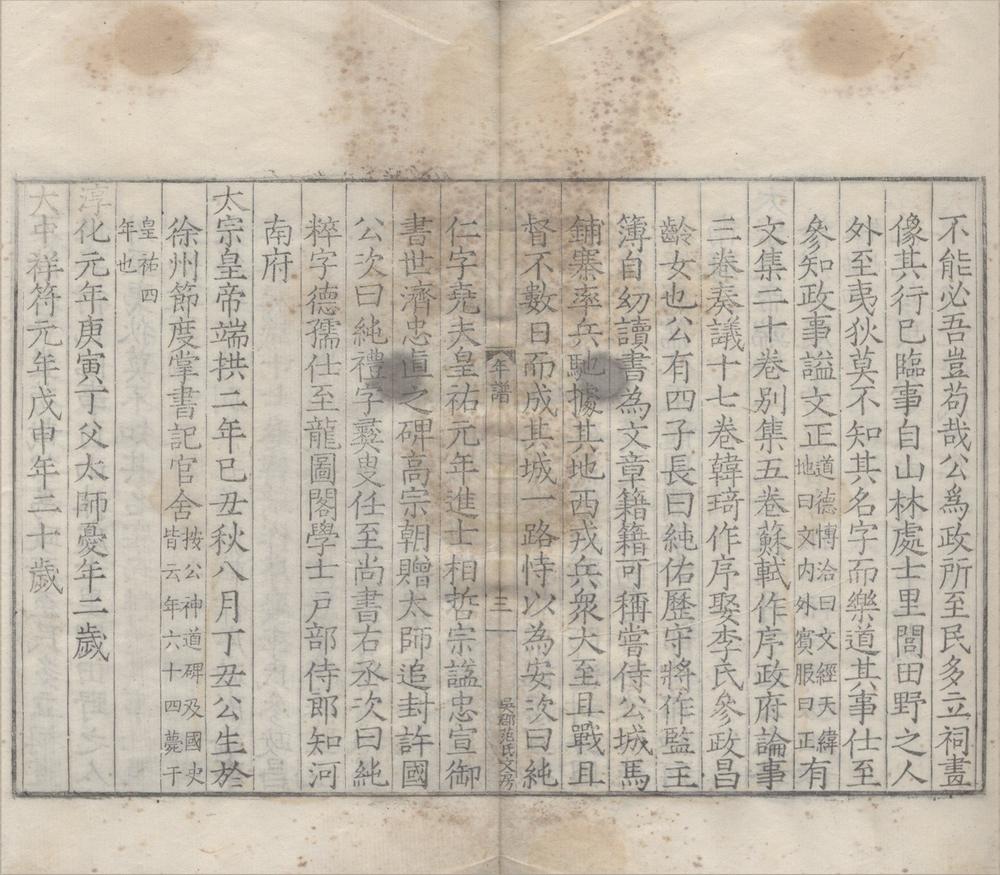 不能必吾豈苟哉公爲政所至民多立祠畫
像其行已臨事自山林處士里閭田野之人
外至夷狄莫不知其名字而樂道其事仕至
參知政事謚文正道德博洽曰文經天緯地曰文內外賓服曰正有
文集二十卷别集五卷蘇軾作序政府論事
三卷奏議十七卷韓琦作序娶李氏參政昌
齡女也公有四子長曰純佑歷守將作監主
簿自㓜讀書為文章籍籍可稱嘗侍公城馬
鋪寨率兵馳據其地西戎兵衆大至且戰且
督不數日而成其城一路恃以為安次曰純
年譜 三 吳郡范氏文房
仁字堯夫皇祐元年進士相哲宗諡忠宣御
書世濟忠直之碑高宗朝贈太師追封許國
公次曰純禮字彝叟任至尚書右丞次曰純
粹字德孺仕至龍圖閣學士戸部侍郎知河
南府
太宗皇帝端拱二年已丑秋八月丁丑公生於
徐州節度掌書記官舍按公神道碑及國史皆云年六十四薨于
皇祐四年也
淳化元年庚寅丁父太師憂年二歲
大中祥符元年戊申年二十歲